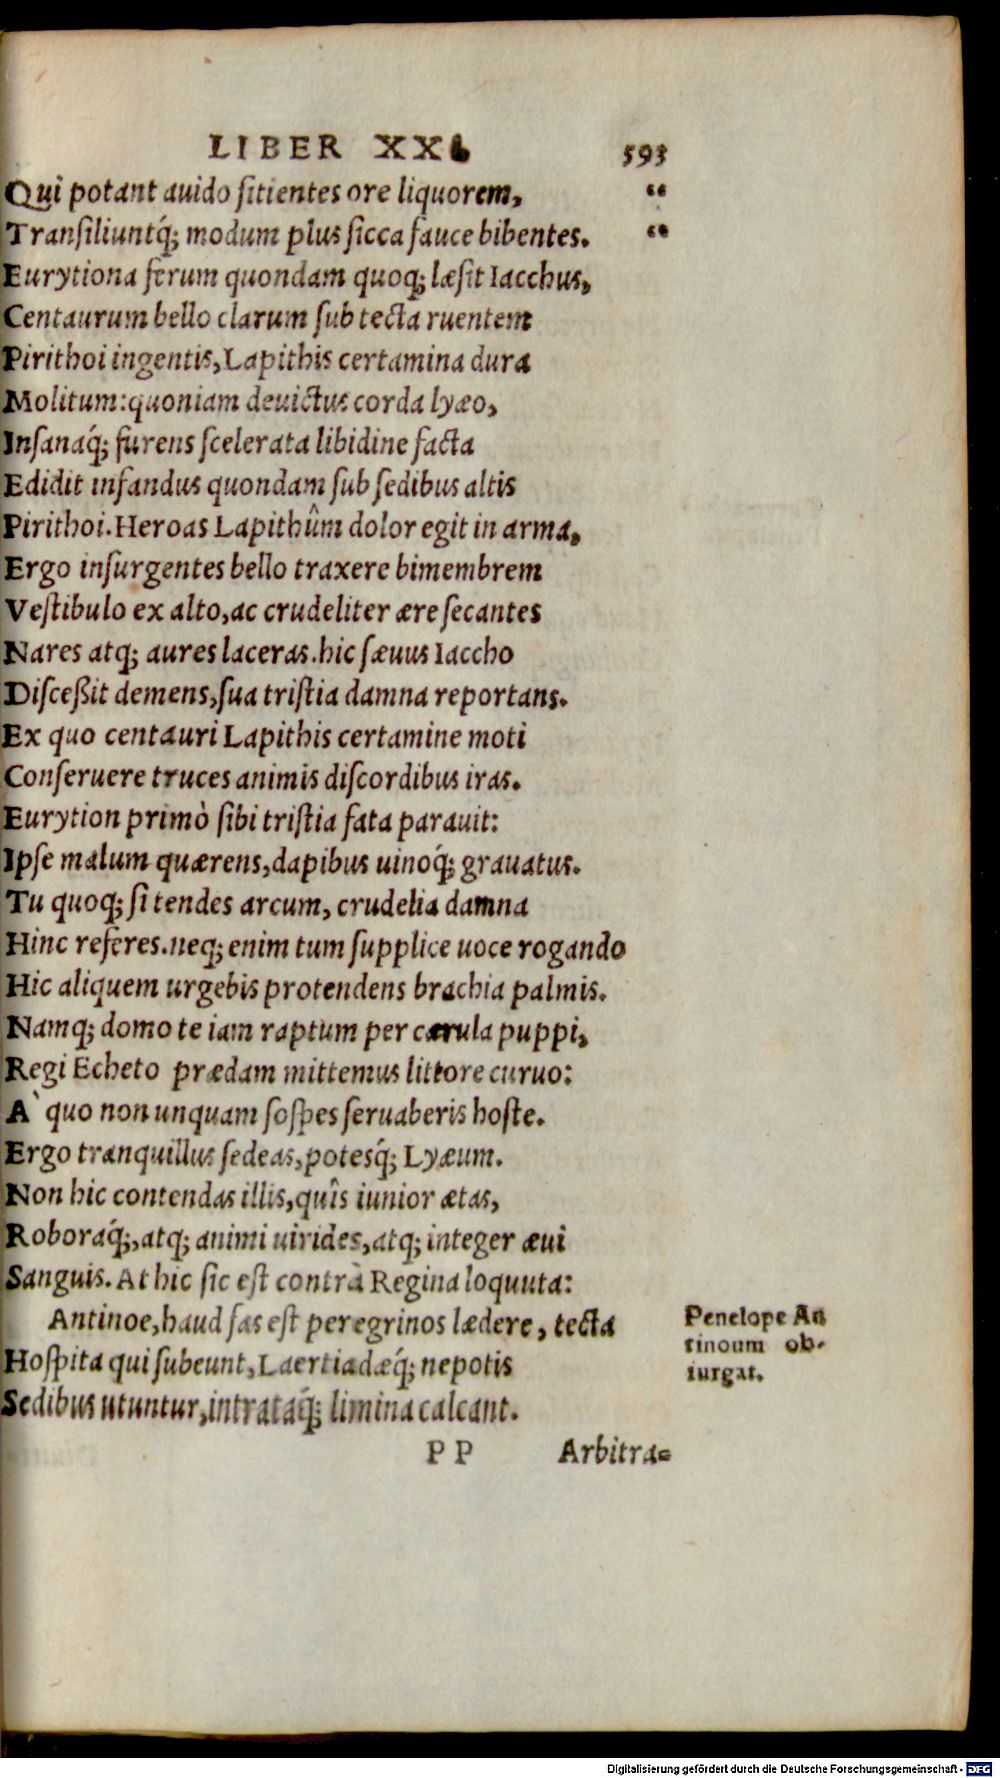 LIBER XXI. 593
Qui potant auido sitientes ore liquorem, “
Transiliuntq́; modum plus sicca fauce bibentes. “
Eurytiona ferum quondam quoq; læsit Iacchus,
Centaurum bello clarum sub tecta ruentem
Pirithoi ingentis, Lapithis certamina dura
Molitum: quoniam deuictus corda lyæo,
Insanaq́; furens scelerata libidine facta
Edidit infandus quondam sub sedibus altis
Pirithoi. Heroas Lapithûm dolor egit in arma,
Ergo insurgentes bello traxere bimembrem
Vestibulo ex alto, ac crudeliter ære secantes
Nares atq; aures laceras. hic sæuus Iaccho
Disceßit demens, sua tristia damna reportans.
Ex quo centauri Lapithis certamine moti
Conseruere truces animis discordibus iras.
Eurytion primò sibi tristia fata parauit:
Ipse malum quærens, dapibus uinoq́; grauatus.
Tu quoq; si tendes arcum, crudelia damna
Hinc referes. neq; enim tum supplice uoce rogando
Hic aliquem urgebis protendens brachia palmis.
Namq; domo te iam raptum per cærula puppi,
Regi Echeto prædam mittemus littore curuo:
A` quo non unquam sospes seruaberis hoste.
Ergo tranquillus sedeas, potesq́; Lyæum.
Non hic contendas illis, quîs iunior ætas,
Roboraq́;, atq; animi uirides, atq; integer æui
Sanguis. At hic sic est contrà Regina loquuta:
Antinoe, haud fas est peregrinos lædere, tecta
Hospita qui subeunt, Laertiadæq́; nepotis
Sedibus utuntur, intrataq́; limina calcant.
Penelope An
tinoum ob-
iurgat.
PP Arbitra=
Digitalisierung gefördert durch die Deutsche Forschungsgemeinschaft - DFG